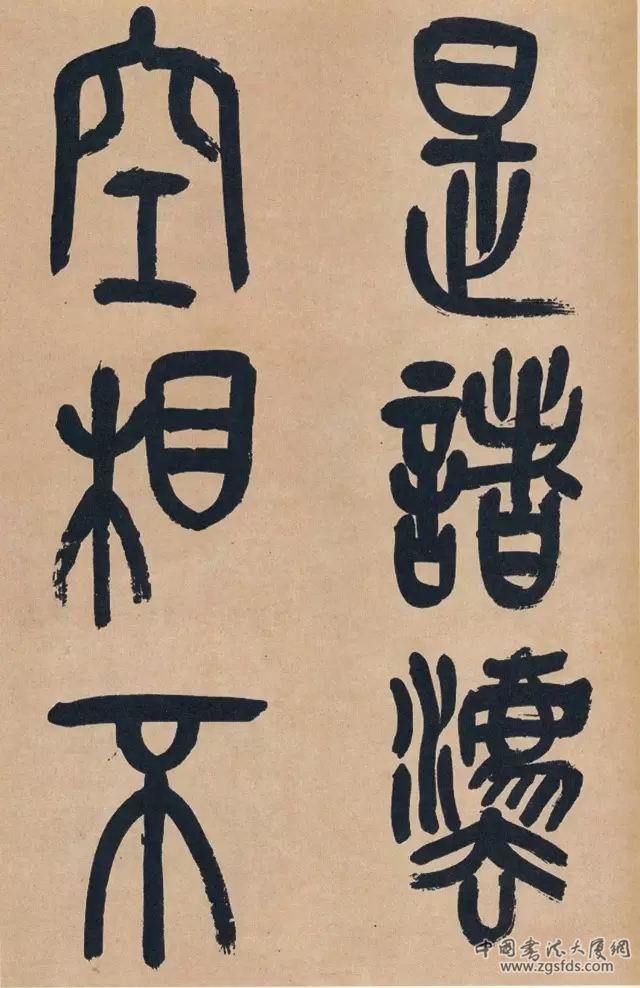 是諸灋
空相不
中国书法大厦網
www.zgsfds.com